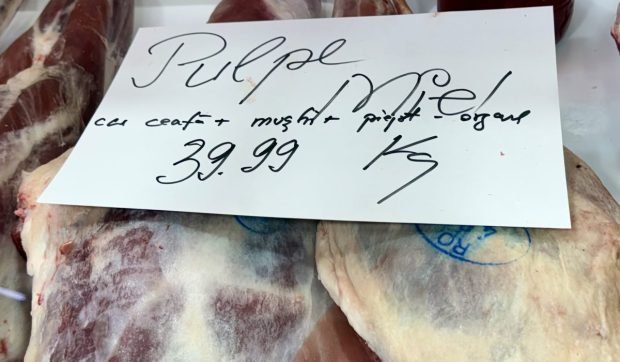 Pulpe Miel
cu ceafă + mușchi + piept - organe
39.99 Kg
RO